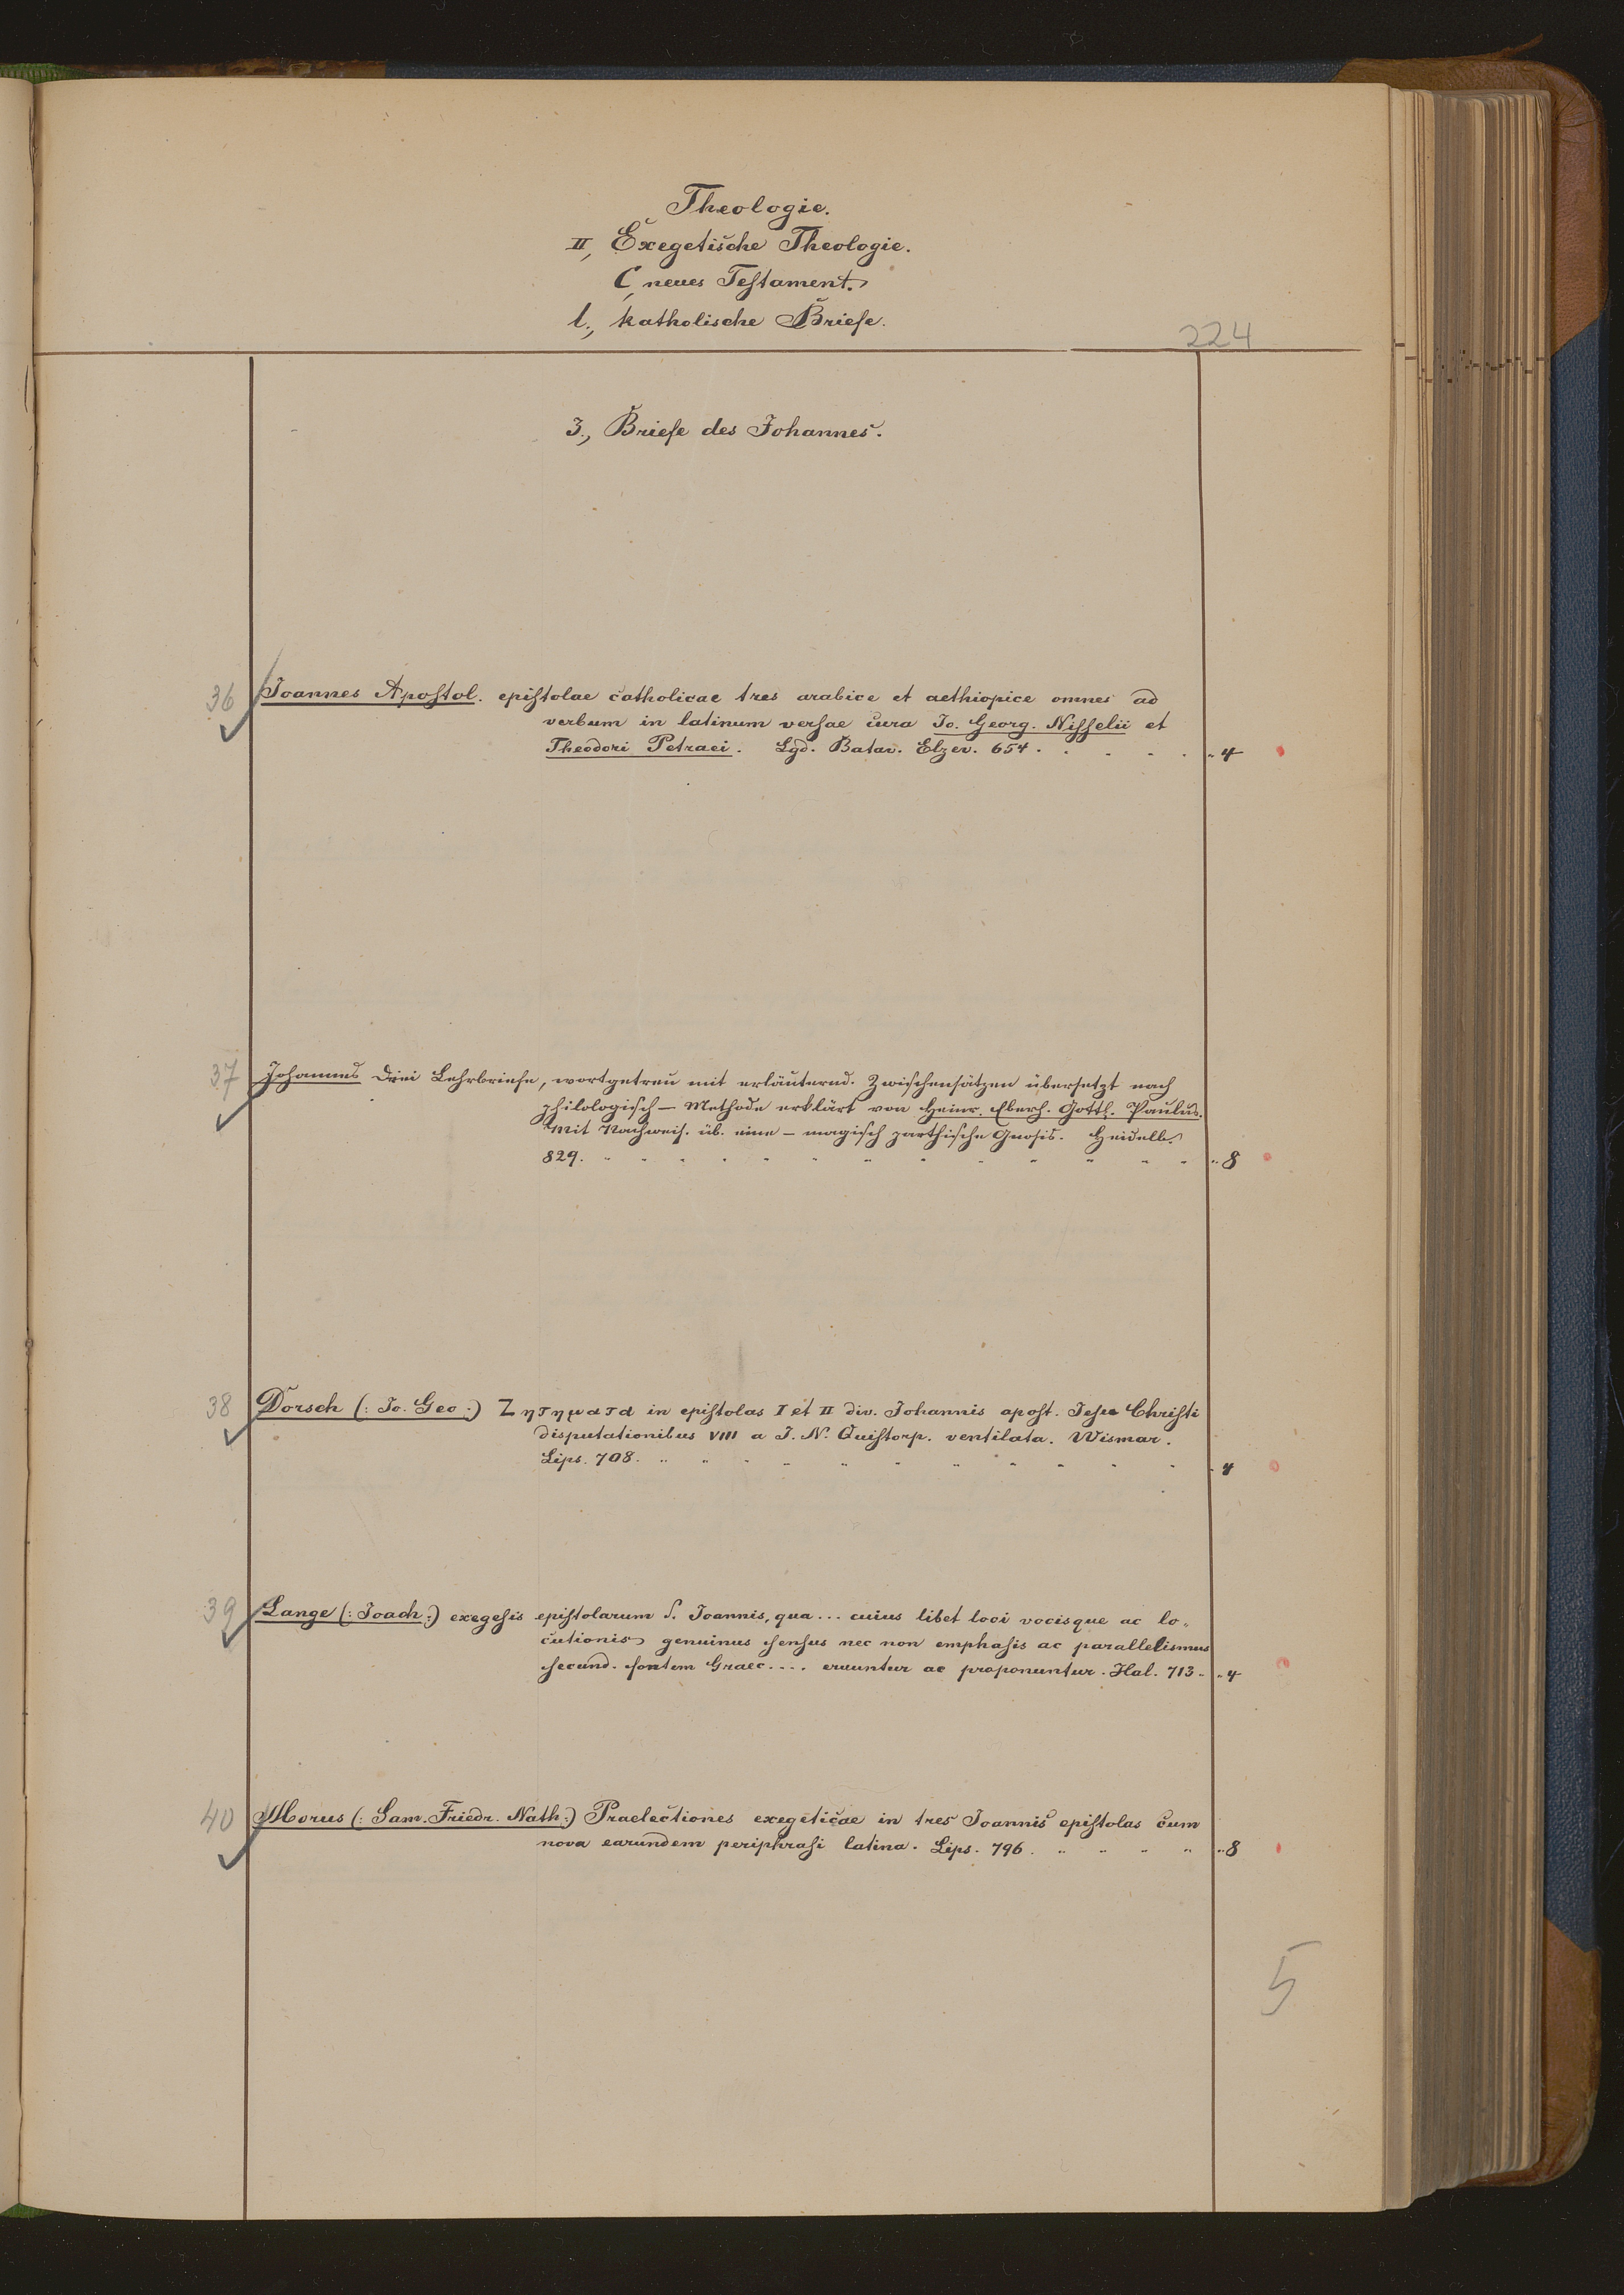 Theologie.
II, Exegetische Theologie.
C, neues Testament.
l., katholische Briefe.
224
3., Briefe des Johannes.
36 Joannes Apostol. epistolae catholicae tres arabice et aethiopice omnes ad
verbum in latinum versae cura Jo. Georg. Nisselii et
Theodori Petraei. Lgd. Batav. Elzev. 654. . . . . „ 4
37 Johannes Drei Lehrbriefe, wortgetreu mit erläuternd. Zwischensätzen übersetzt nach
philologisch – Methode erklärt von Heinr. Eberh. Gottl. Paulus.
Mit Nachweis. üb. eine – magisch parthische Gnosis. Heidelb.
829. „ „ „ „ „ „ „ „ „ „ „ „ „ „ 8
38 Dorsch (: Jo. Geo :) Ζητηματα in epistolas I et II div. Johannis apost. Jesu Christi
disputationibus VIII a J. N. Quistorp. ventilata. Wismar.
Lips. 708. „ „ „ „ „ „ „ „ „ „ „ „ 4
39 Lange (: Joach :) exegesis epistolarum S. Joannis, qua ... cuius libet loci vocisque ac lo„
cutionis genuinus sensus nec non emphasis ac parallelismus
secund. fontem Graec .... eruuntur ac proponuntur. Hal. 713 „ „ 4
40 Morus (: Sam. Friedr. Nath :) Praelectiones exegeticae in tres Joannis epistolas cum
nova earundem periphrasi latina. Lips. 796. „ „ „ „ „ 8
5